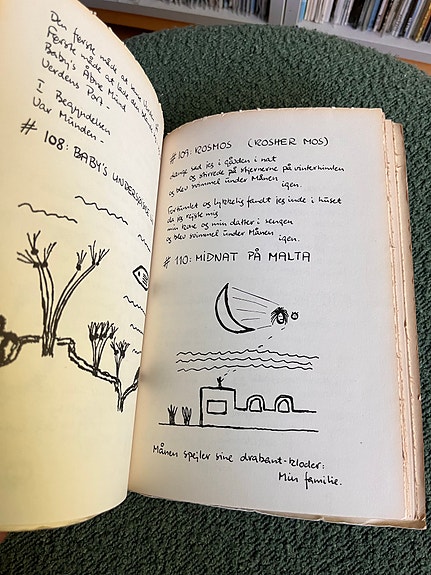 Den første måde at
Første måde at lade det
Baby's Åbne Mund
Verdens Port -
I Begyndelsen
Var Munden -
# 108: BABY'S
#109: KOSMOS (KOSHER MOS)
Længe sad jeg i gården i nat
og stirrede på stjernerne på vinterhimlen
og blev svimmel under Månen
igen.
Fortumlet og lykkelig fandt jeg inde i huset
da jeg rejste mig
min kone og min datter i sengen
og blev svimmel under Månen
igen.
# 110: MIDNAT PÅ MALTA
Månen spejler sine drabant-kloder:
Min familie.